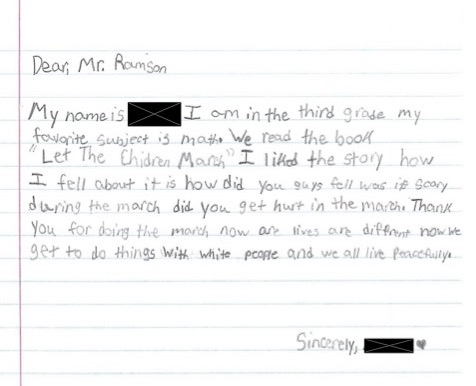 Dear, Mr. Ramson
My name is I am in the third grade my
favorite subject is math. We read the book
"Let The Chidren March" I liked the story how
I fell about it is how did you guys fell was it scary
during the march did you get hurt in the march. Thank
you for doing the march now are lives are different now we
get to do things with white people and we all live peacefully.
Sincerely,